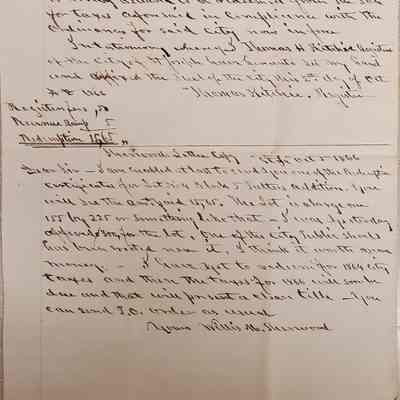 for taxes aforesaid in Compliance with the
Ordinances for said City now in force
In testimony whereof Thomas H Ritchie Register
of the City of St Joseph have hereunto set my hand
and affixed the seal of the City this 5th day of Oct
A D 1866
Thomas Ritchie, Register
Register fees, 50
Revenue Stamp 5
Redemption
Sherwood Letter Copy - St Jo Oct 5 1866
Dear Sir - I am enabled at last to send you one of the Redemption
Certificates for Lot No 4 Block 5 Addition. You
will see the amt paid 17,65. The Lot is a large one
155 by 225 or something like that - I was yesterday
offered for the lot, One of the City Public Schools
has been located near it, I think it worth more
money. - I have yet to redeem for 1864 City
taxes and then the taxes for 1866 will soon be
due and that will present a clear title - You
can send P.O. order as usual
Yours Willis M. Sherwood